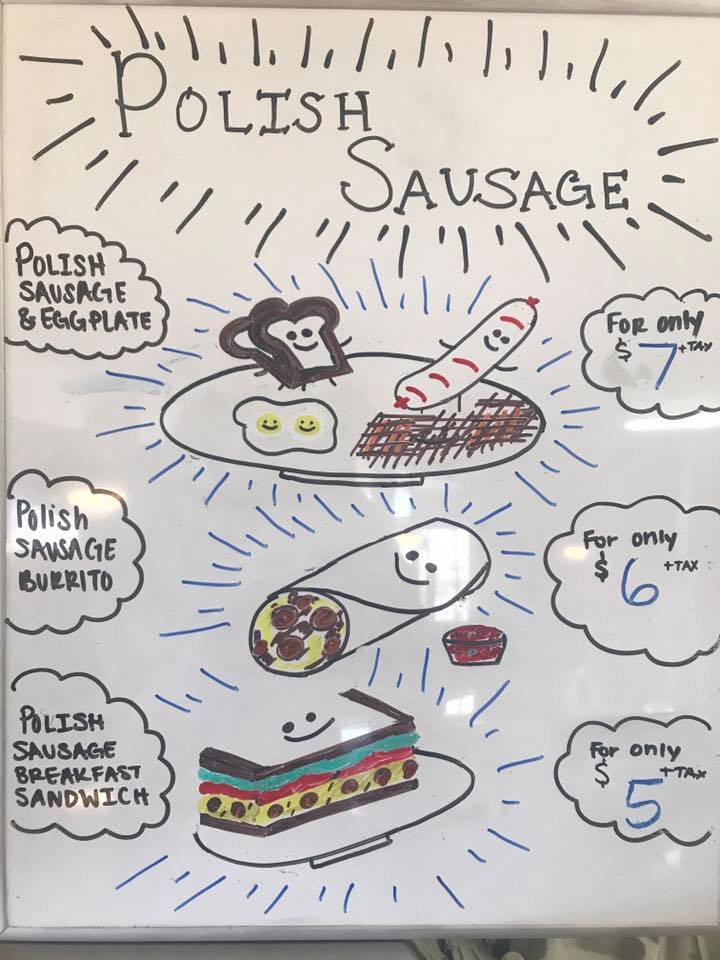 POLISH
SAUSAGE
POLISH
SAUSAGE
& EGG PLATE
FOR only
$7 +TAX
Polish
SAUSAGE
BURRITO
For only
$6 +TAX
POLISH
SAUSAGE
BREAKFAST
SANDWICH
For only
$5 +TAX